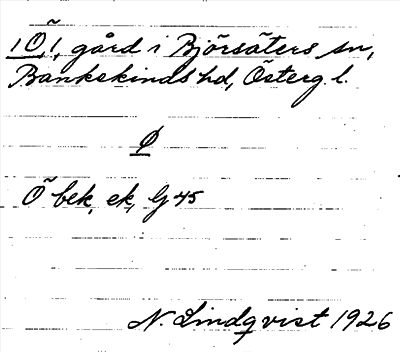 1 Õ, 1, gård i Björsäters sn,
Bankekinds hd, Österg. l.
Ö
Õ bek, ek, G 45
N. Lindqvist 1926